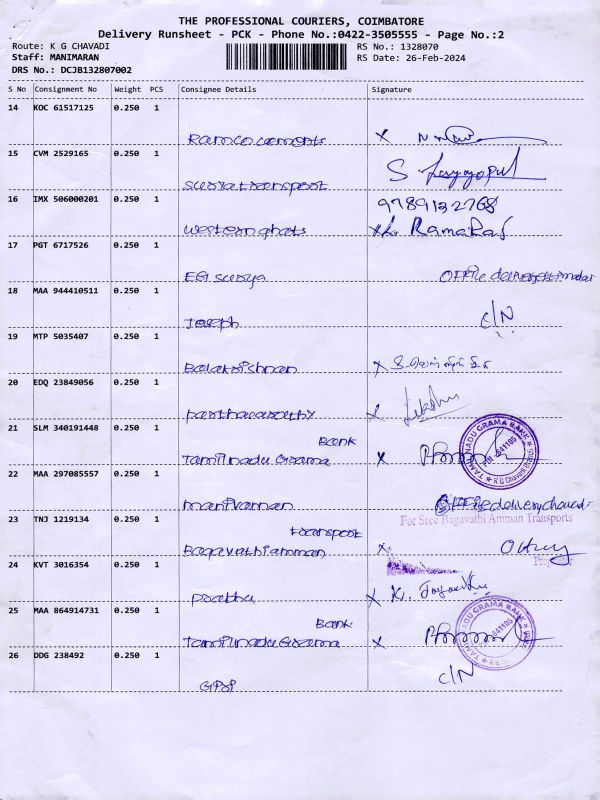 THE PROFESSIONAL COURIERS, COIMBATORE
Delivery Runsheet - PCK - Phone No.:0422-3505555 - Page No.:2
Route: K G CHAVADI RS No.: 1328070
Staff: MANIMARAN RS Date: 26-Feb-2024
DRS No.: DCJB132807002
S No Consignment No Weight PCS Consignee Details Signature
14 KOC 61517125 0.250 1
Ramco cements x
15 CVM 2529165 0.250 1
Surya transport S
16 IMX 506000201 0.250 1 9789132768
western ghats x RamaRaj
17 PGT 6717526 0.250 1
EG Surya Office
18 MAA 944410511 0.250 1
Joseph C/N
19 MTP 5035407 0.250 1
Balakrishnan x
20 EDQ 23849056 0.250 1
Parthasarathy x
21 SLM 340191448 0.250 1 Bank
Tamilnadu Grama x
TAMIL NADU GRAMA BANK
PIN - 641105
K G Chavadi Branch
22 MAA 297085557 0.250 1
manivannan Office delivery
23 TNJ 1219134 0.250 1 transport For Sree Bagavathi Amman Transports
Bagavathi amman x
24 KVT 3016354 0.250 1
Prabhu x K.
25 MAA 864914731 0.250 1 Bank
Tamilnadu Grama x
TAMIL NADU GRAMA BANK
641105
26 DDG 238492 0.250 1 C/N
GPSP